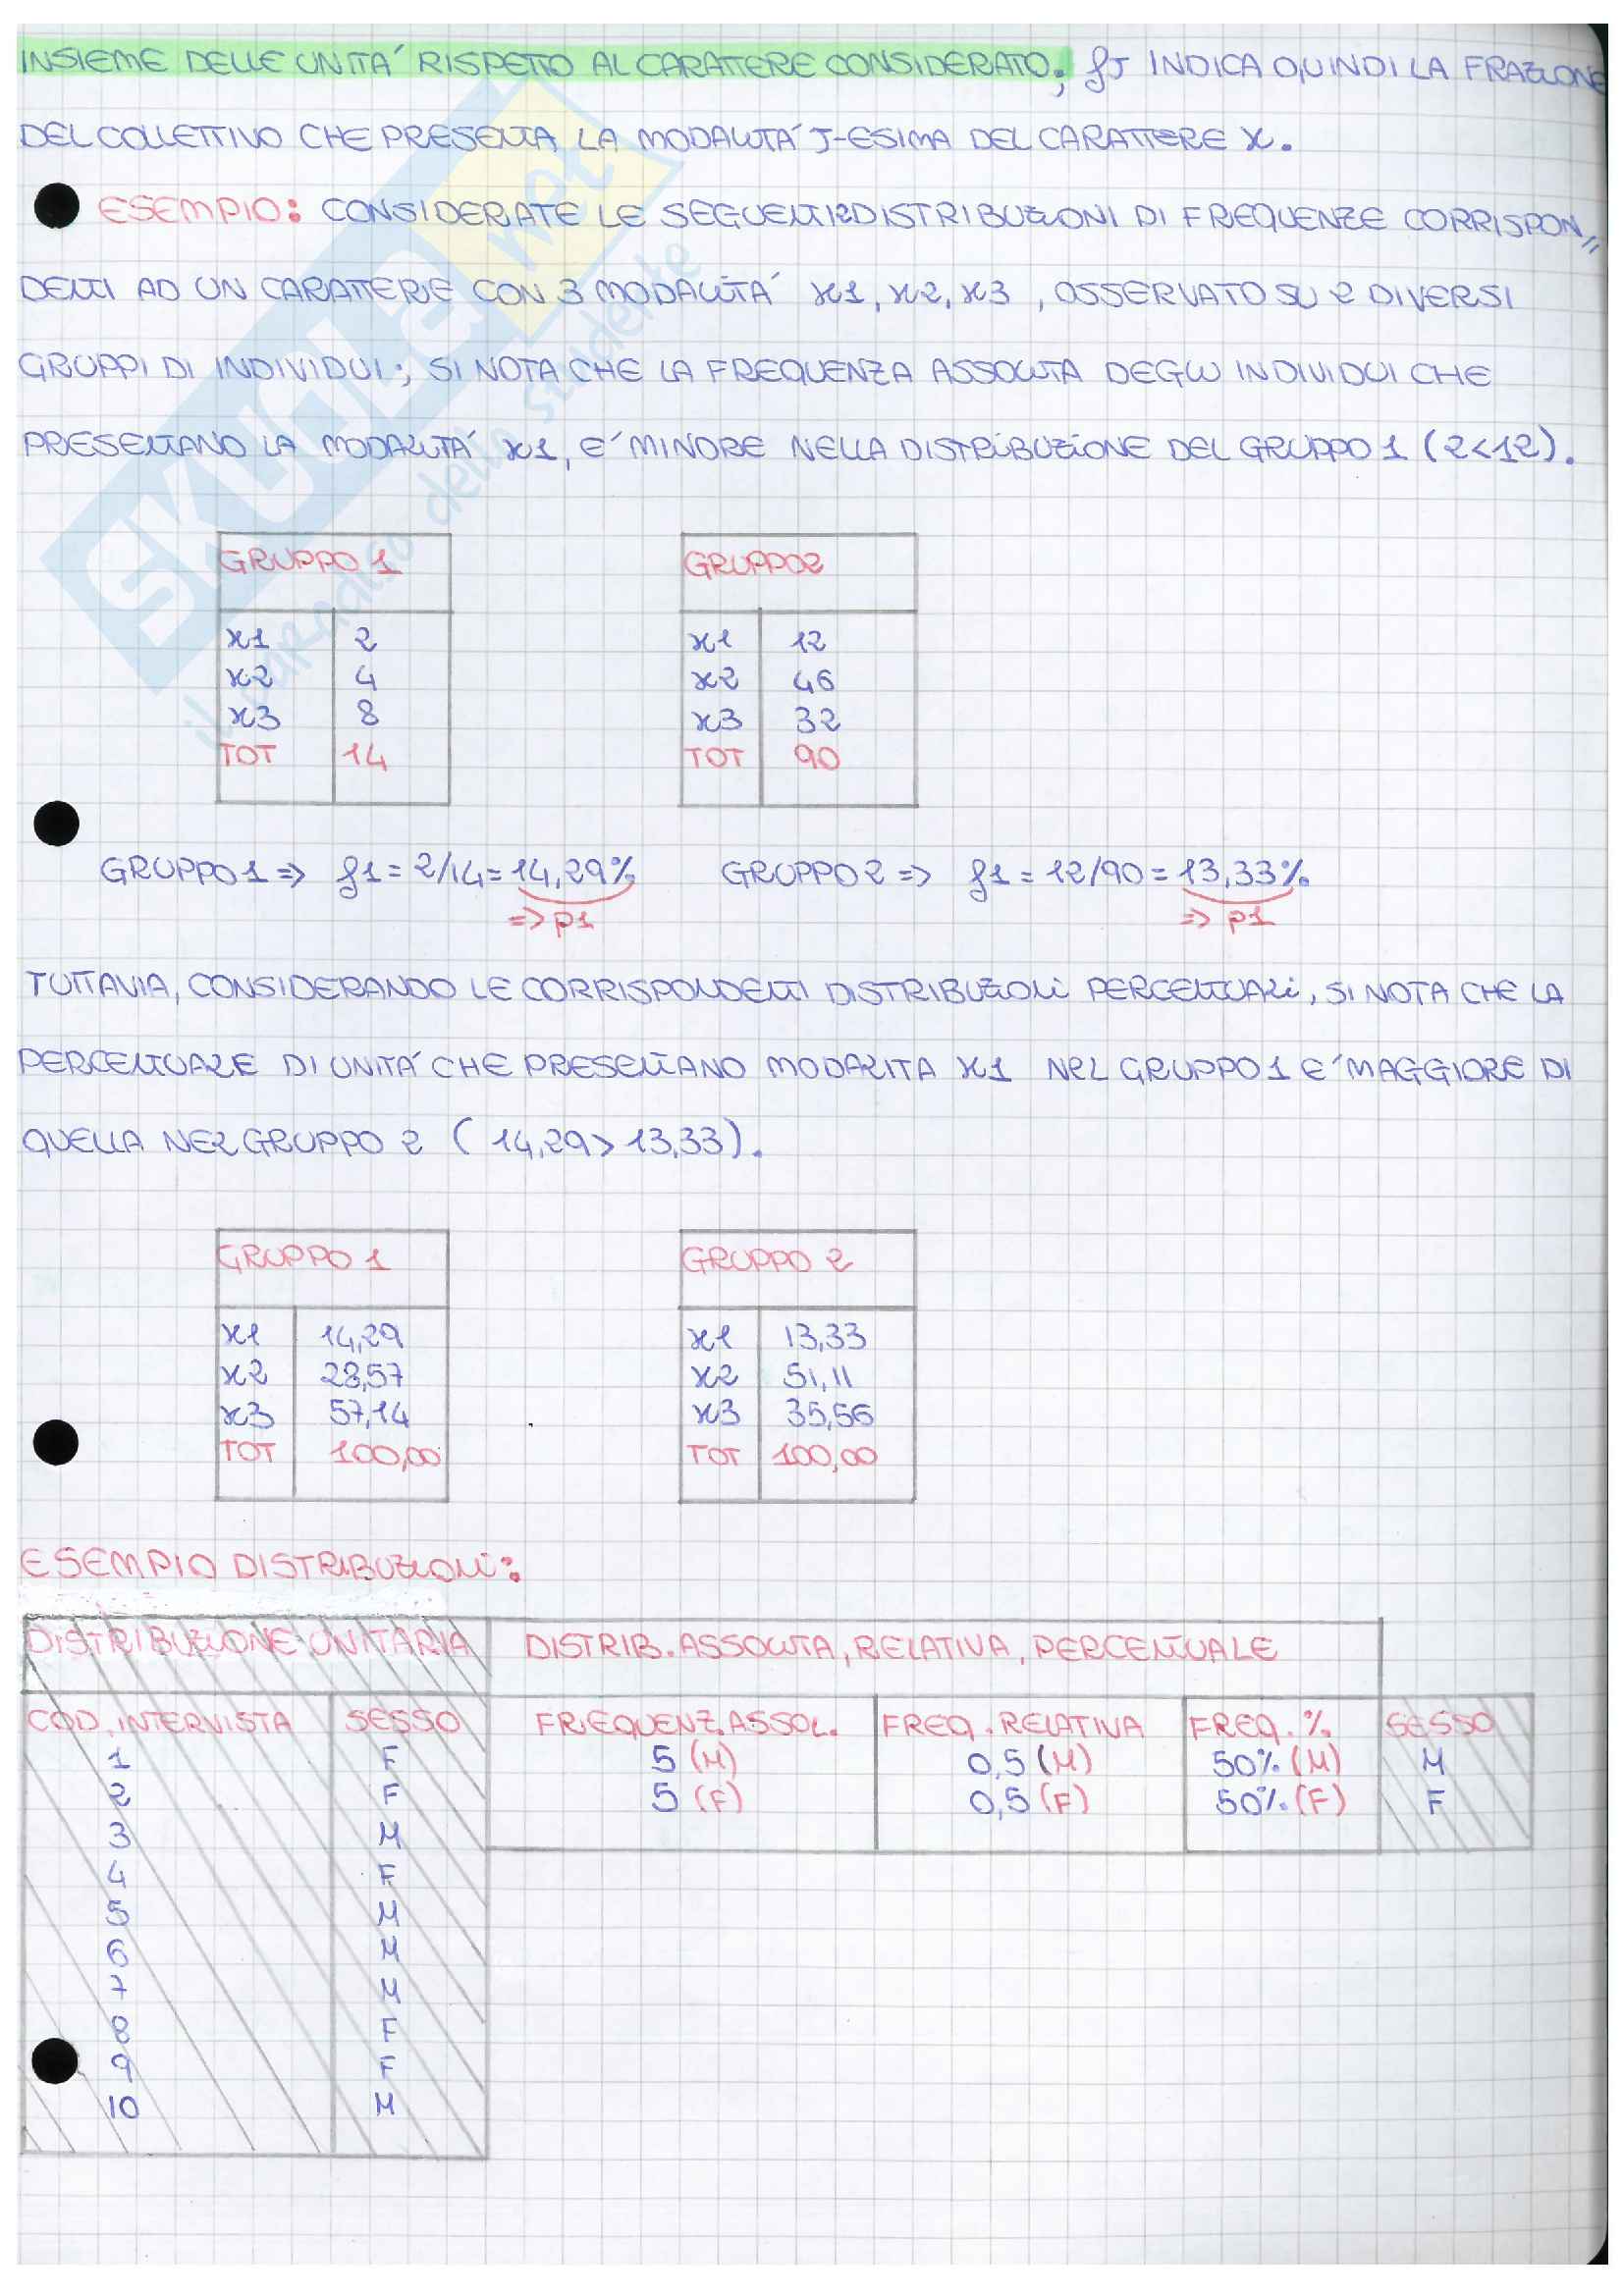 INSIEME DELLE UNITA' RISPETTO AL CARATTERE CONSIDERATO; fJ INDICA QUINDI LA FRAZIONE
DEL COLLETTIVO CHE PRESENTA LA MODALITA' J-ESIMA DEL CARATTERE X.
ESEMPIO: CONSIDERATE LE SEGUENTI 2 DISTRIBUZIONI DI FREQUENZE CORRISPON//
DENTI AD UN CARATTERE CON 3 MODALITA' x1, x2, x3, OSSERVATO SU 2 DIVERSI
GRUPPI DI INDIVIDUI; SI NOTA CHE LA FREQUENZA ASSOLUTA DEGLI INDIVIDUI CHE
PRESENTANO LA MODALITA' x1, E' MINORE NELLA DISTRIBUZIONE DEL GRUPPO 1 (2<12).
GRUPPO 1 GRUPPO 2
x1 2 x1 12
x2 4 x2 46
x3 8 x3 32
TOT 14 TOT 90
GRUPPO 1 => f1 = 2/14 = 14,29% GRUPPO 2 => f1 = 12/90 = 13,33%
=> p1 => p1
TUTTAVIA, CONSIDERANDO LE CORRISPONDENTI DISTRIBUZIONI PERCENTUALI, SI NOTA CHE LA
PERCENTUALE DI UNITA' CHE PRESENTANO MODALITA x1 NEL GRUPPO 1 E' MAGGIORE DI
QUELLA NEL GRUPPO 2 (14,29 > 13,33).
GRUPPO 1 GRUPPO 2
x1 14,29 x1 13,33
x2 28,57 x2 51,11
x3 57,14 x3 35,56
TOT 100,00 TOT 100,00
ESEMPIO DISTRIBUZIONI:
DISTRIBUZIONE UNITARIA DISTRIB. ASSOLUTA, RELATIVA, PERCENTUALE
COD. INTERVISTA SESSO FREQUENZ. ASSOL. FREQ. RELATIVA FREQ. % SESSO
1 F 5 (M) 0,5 (M) 50% (M) M
2 F 5 (F) 0,5 (F) 50% (F) F
3 M
4 F
5 M
6 M
7 M
8 F
9 F
10 M
SKUOLA.net
il paradiso dello studente